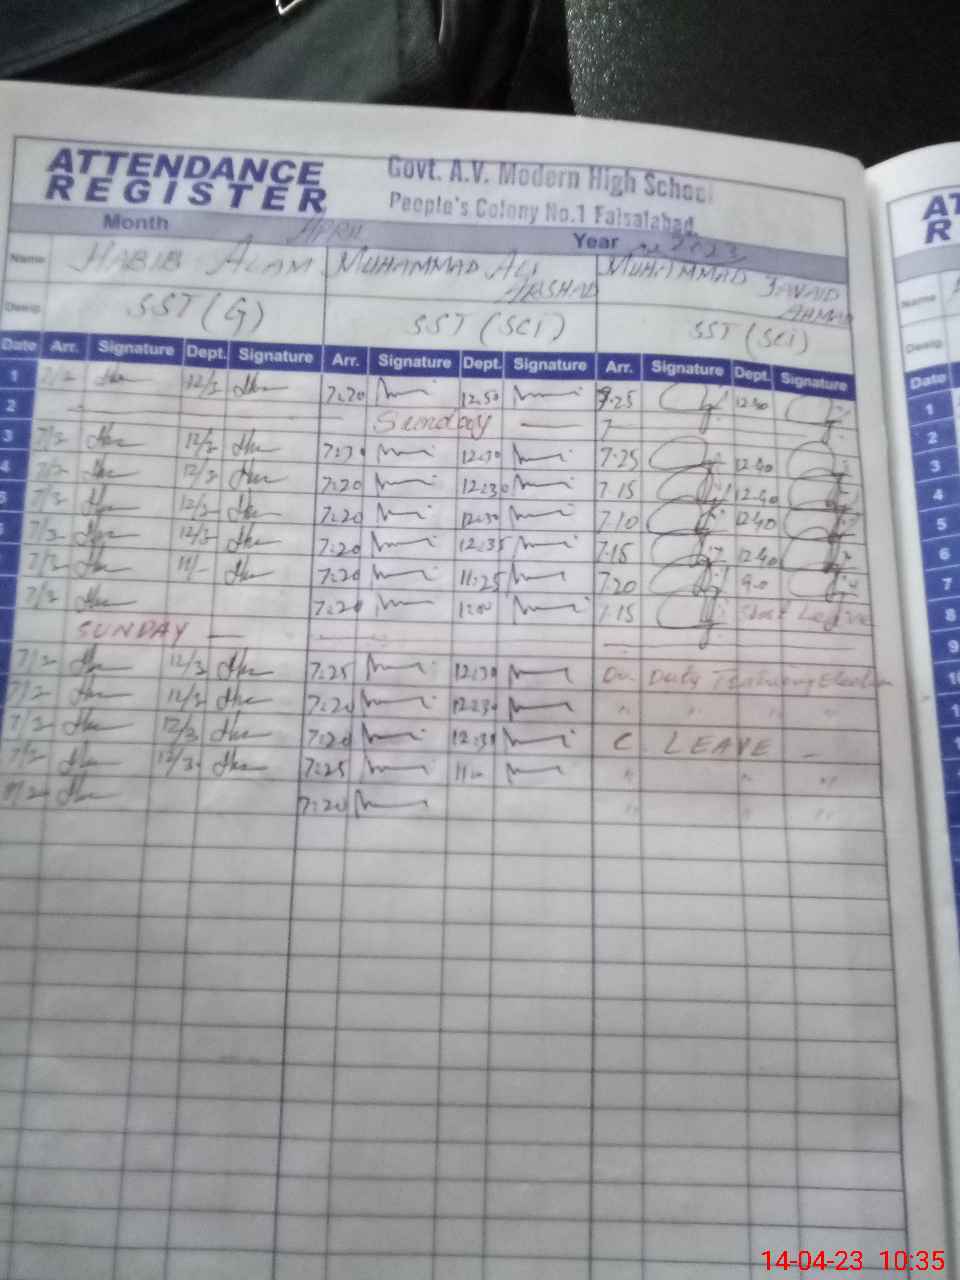 ATTENDANCE REGISTER
Govt. A.V. Modern High School
People's Colony No.1 Faisalabad.
Month APRIL Year 2023
Name HABIB ALAM MUHAMMAD ALI ARSHAD MUHAMMAD JAVAID AHMAD
Desig. SST (G) SST (SCI) SST (SCI)
Date Arr. Signature Dept. Signature Arr. Signature Dept. Signature Arr. Signature Dept. Signature
1 7/2 12/3 7:20 12:50 7.25 12.30
2 Sunday
3 7/2 12/3 12:30 7.25 12.40
4 7/2 12/3 7:20 12:30 7.15 12.40
5 7/2 12/3 7:20 12:30 7.10 12.40
7/2 12/3 7:20 12:35 7.15 12.40 6
7/2 11/- 7:20 11:25 7.20 9.0 7
7/2 7:20 12:00 7.15 Short Leave 8
SUNDAY 9
7/2 12/3 7:25 12:30 On Duty Training Election 10
7/2 12/3 7:20 12:30 " " "
7/2 12/3 7:20 12:30 C LEAVE
7/2 12/3 7:25 11- " " "
7/2 7:20 " " "
AT
R
Name
Desig.
Date
1
2
3
4
5
6
7
8
9
10
14-04-23 10:35